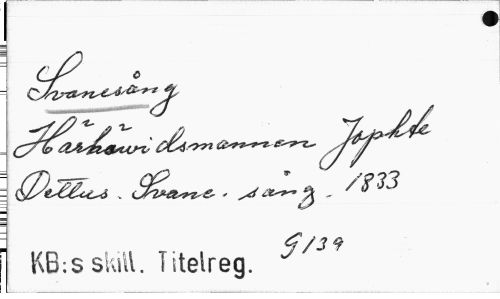 Svanesång
Härhöwidsmannen Jophte
Dettus. Svane. sång. 1833
G139
KB:s skill. Titelreg.